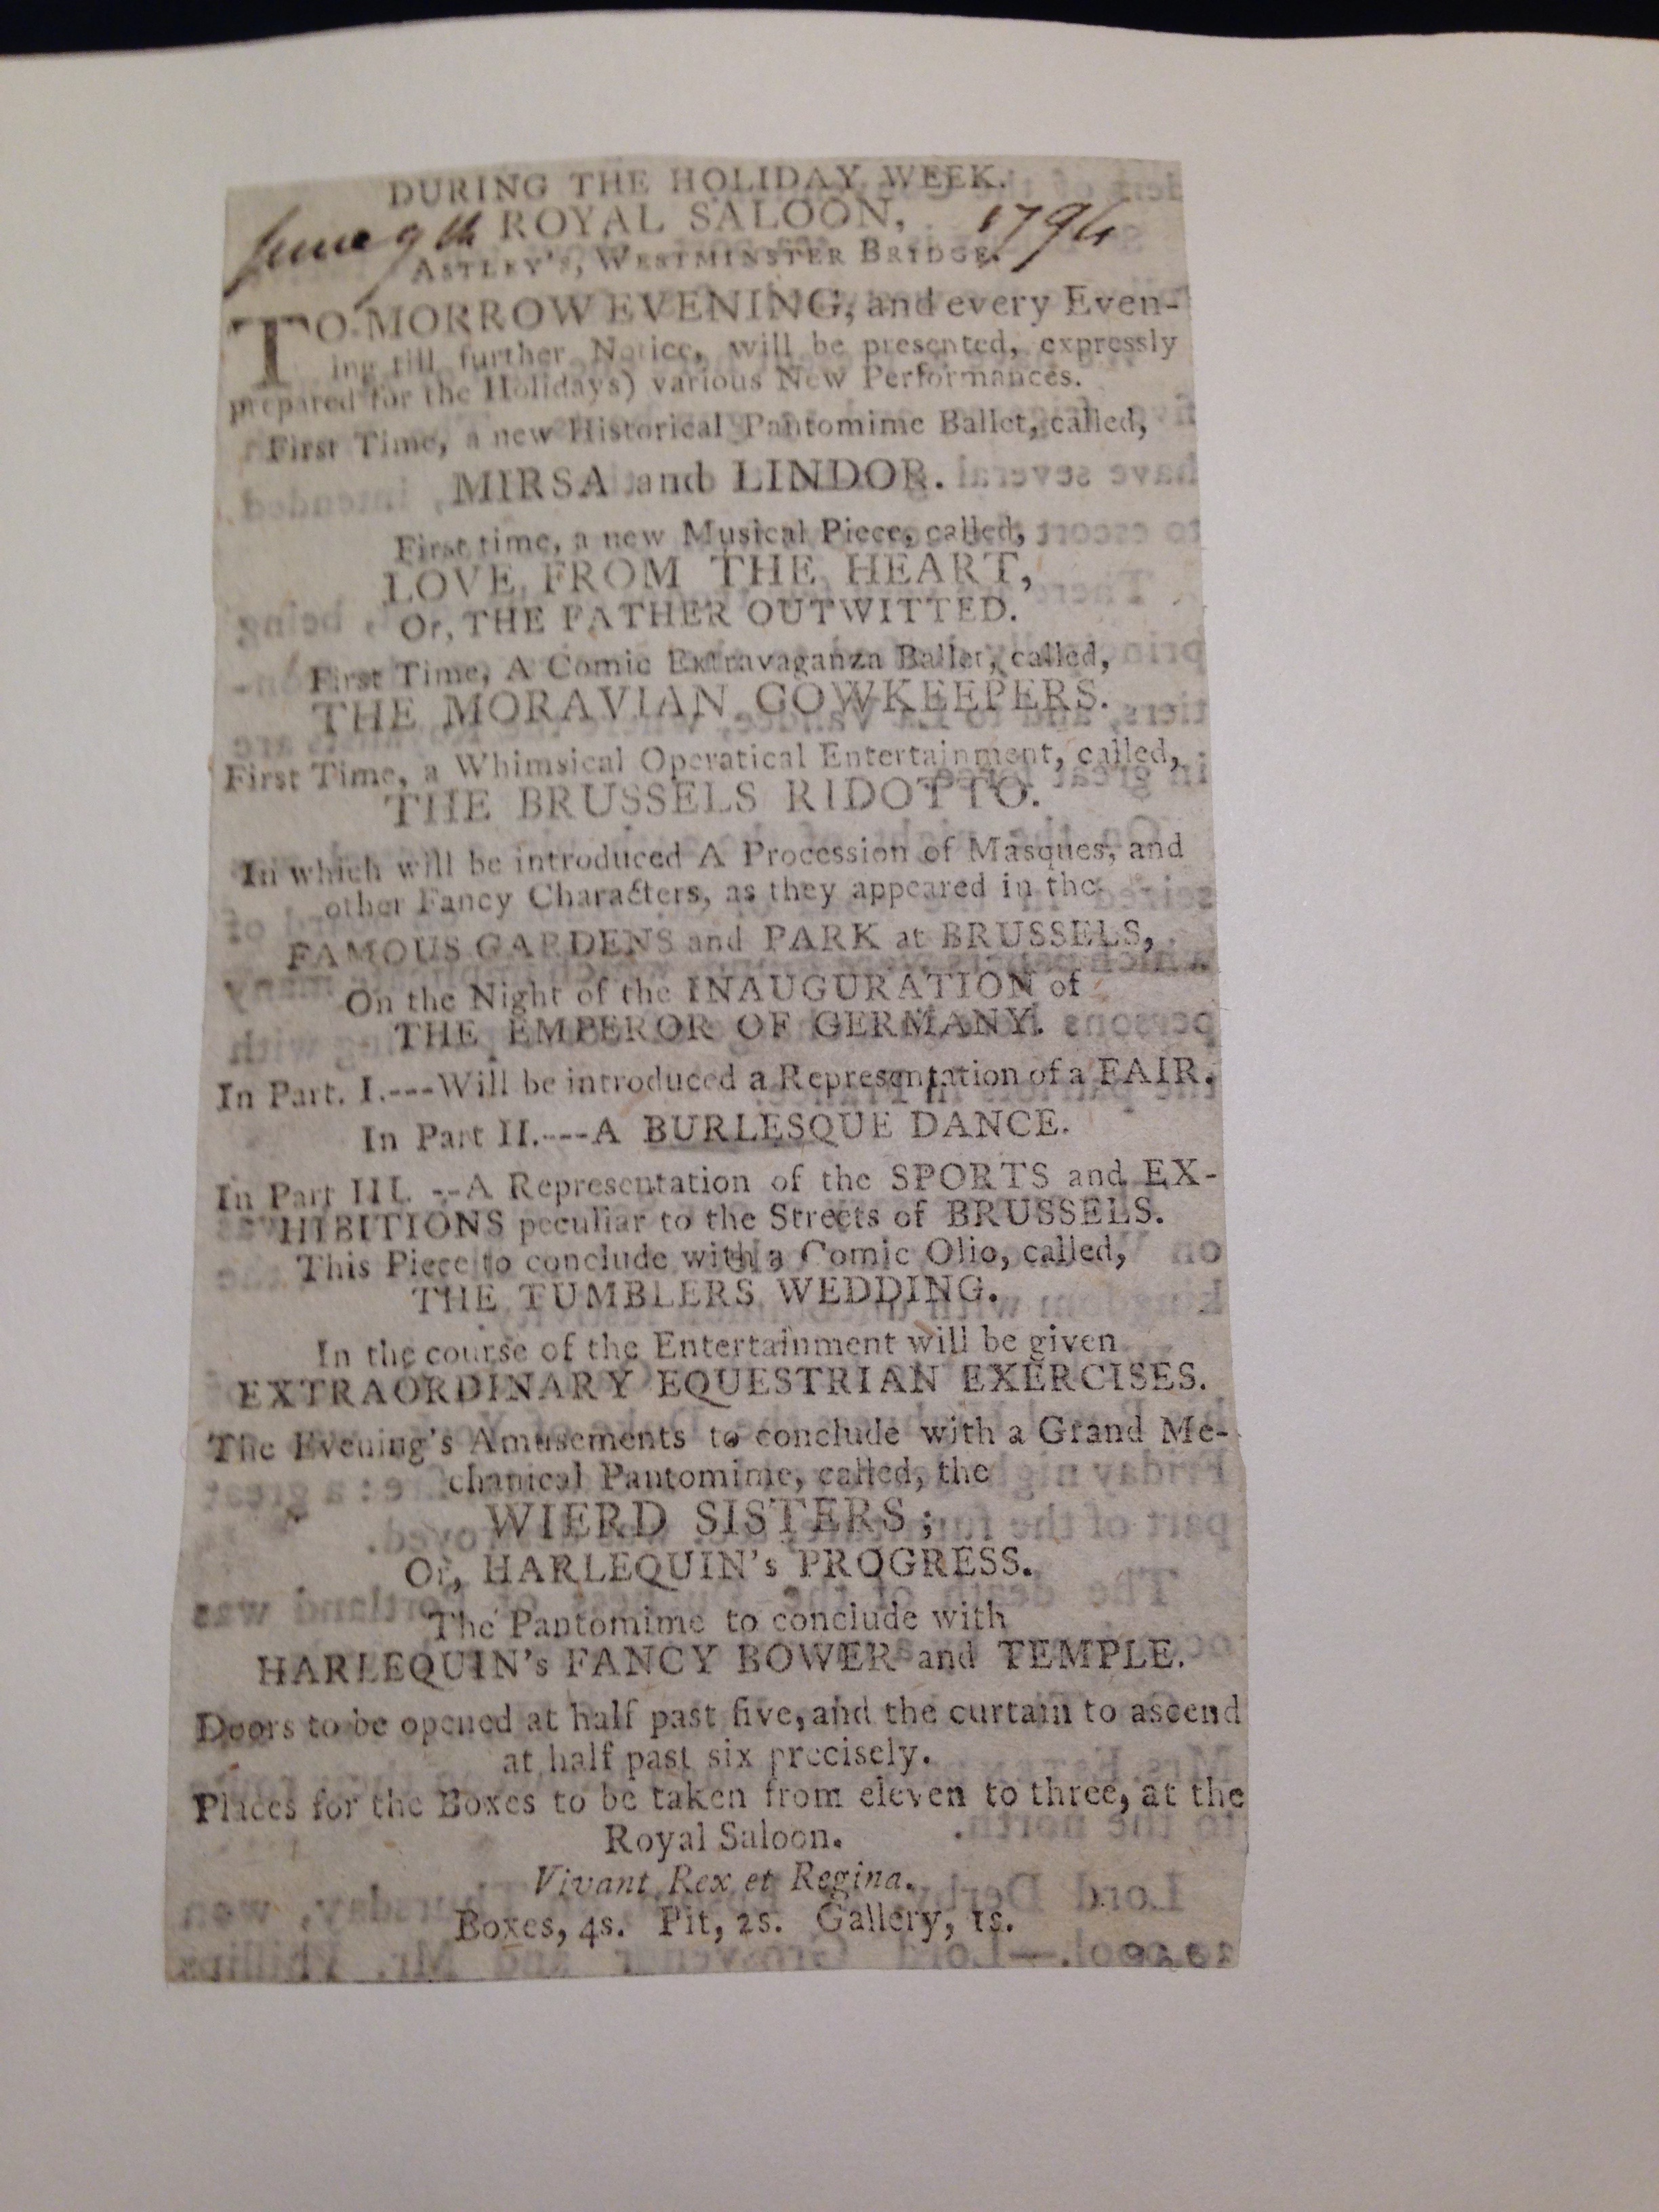 DURING THE HOLIDAY WEEK.
June 9th ROYAL SALOON, 1794
ASTLEY's, WESTMINSTER BRIDGE.
TO-MORROW EVENING, and every Even-
ing till further Notice, will be presented, expressly
prepared for the Holidays) various New Performances.
First Time, a new Historical Pantomime Ballet, called,
MIRSA and LINDOR.
First time, a new Musical Piece, called,
LOVE FROM THE HEART,
Or, THE FATHER OUTWITTED.
First Time, A Comic Extravaganza Ballet, called,
THE MORAVIAN COWKEEPERS.
First Time, a Whimsical Operatical Entertainment, called,
THE BRUSSELS RIDOTTO.
In which will be introduced A Procession of Masques, and
other Fancy Characters, as they appeared in the
FAMOUS GARDENS and PARK at BRUSSELS,
On the Night of the INAUGURATION of
THE EMPEROR OF GERMANY.
In Part. I.---Will be introduced a Representation of a FAIR.
In Part II.---A BURLESQUE DANCE.
In Part III. --A Representation of the SPORTS and EX-
HIBITIONS peculiar to the Streets of BRUSSELS.
This Piece to conclude with a Comic Olio, called,
THE TUMBLERS WEDDING.
In the course of the Entertainment will be given
EXTRAORDINARY EQUESTRIAN EXERCISES.
The Evening's Amusements to conclude with a Grand Me-
chanical Pantomime, called, the
WIERD SISTERS;
Or, HARLEQUIN's PROGRESS.
The Pantomime to conclude with
HARLEQUIN's FANCY BOWER and TEMPLE.
Doors to be opened at half past five, and the curtain to ascend
at half past six precisely.
Places for the Boxes to be taken from eleven to three, at the
Royal Saloon.
Vivant Rex et Regina.
Boxes, 4s. Pit, 2s. Gallery, 1s.